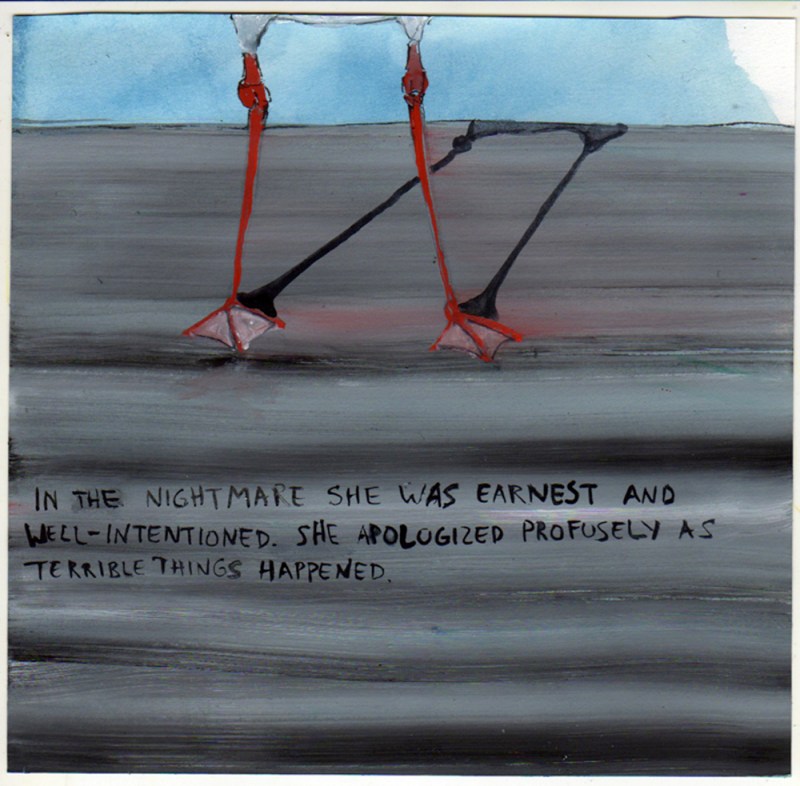 IN THE NIGHTMARE SHE WAS EARNEST AND
WELL-INTENTIONED. SHE APOLOGIZED PROFUSELY AS
TERRIBLE THINGS HAPPENED.